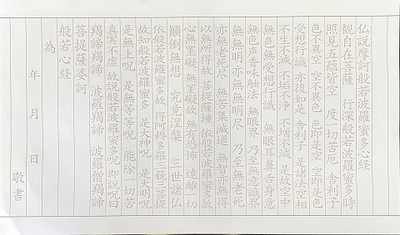 仏説摩訶般若波羅蜜多心経
観自在菩薩 行深般若波羅蜜多時
照見五蘊皆空 度一切苦厄 舎利子
色不異空 空不異色 色即是空 空即是色
受想行識 亦復如是 舎利子 是諸法空相
不生不滅 不垢不浄 不増不減 是故空中
無色無受想行識 無眼耳鼻舌身意
無色声香味触法 無眼界 乃至無意識界
無無明亦無無明尽 乃至無老死
亦無老死尽 無苦集滅道 無智亦無得
以無所得故 菩提薩埵 依般若波羅蜜多故
心無罣礙 無罣礙故 無有恐怖 遠離一切
顛倒夢想 究竟涅槃 三世諸仏
依般若波羅蜜多故 得阿耨多羅三藐三菩提
故知般若波羅蜜多 是大神呪 是大明呪
是無上呪 是無等等呪 能除一切苦
真実不虚 故説般若波羅蜜多呪 即説呪曰
羯諦羯諦 波羅羯諦 波羅僧羯諦
菩提薩婆訶
般若心経
為
年 月 日
敬書